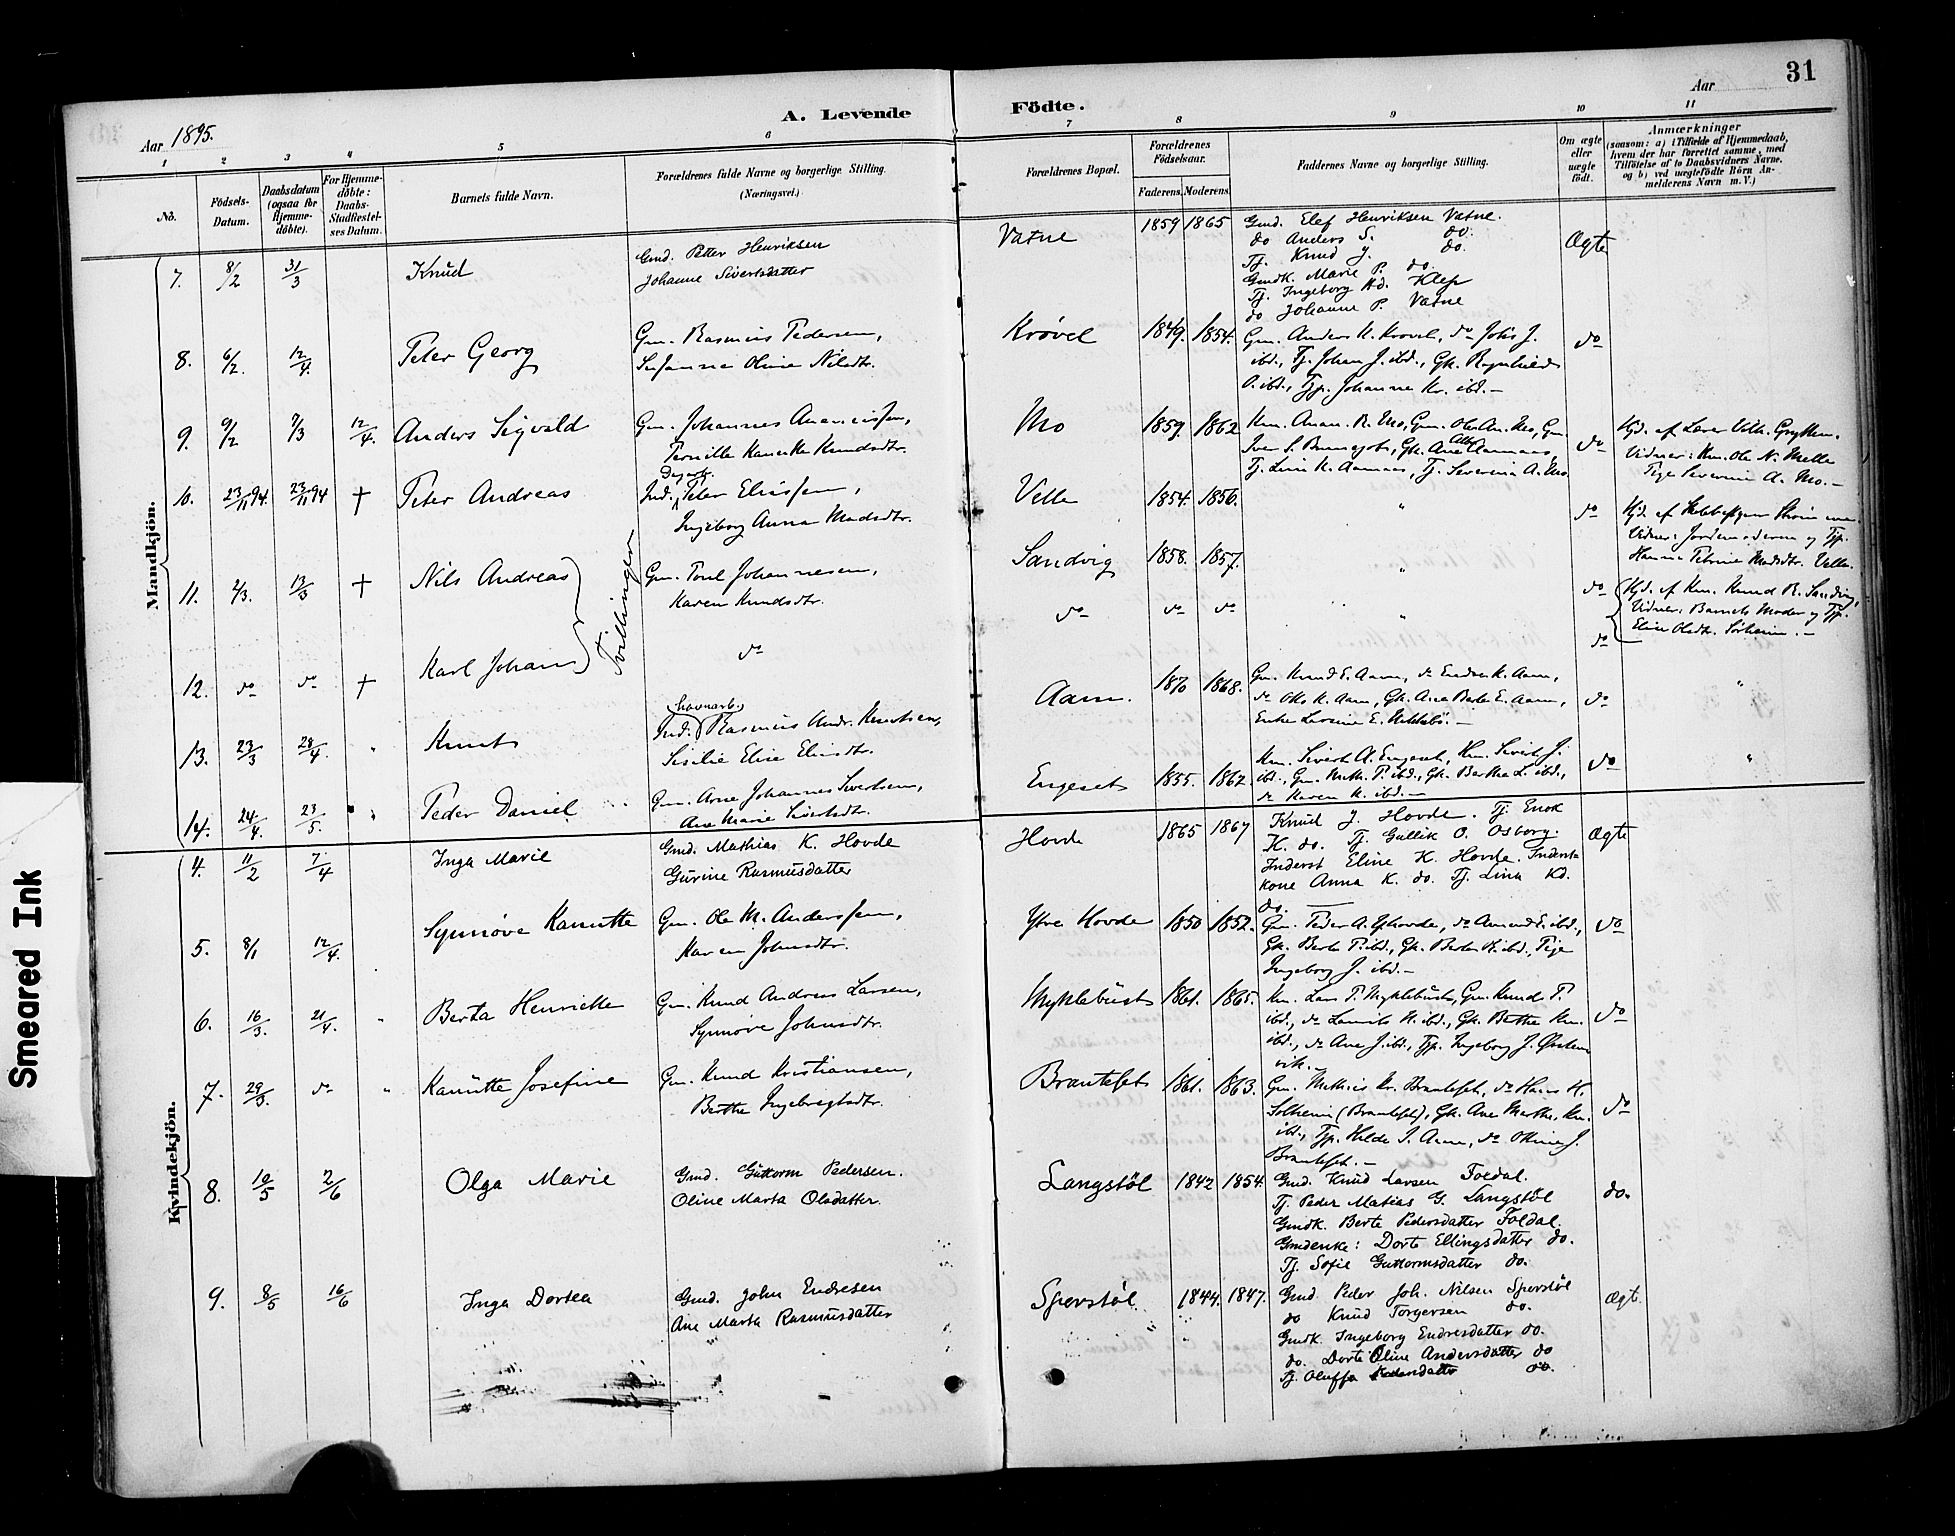 31
A. Levende
Födte.
Aar
Aar 1895.
1 2 3 4 5 6 7 8 9 10 11
No.
Födsels-Datum.
Daabsdatum (ogsaa for Hjemme-döbte).
For Hjemme-döbte: Daabs-Stadfæstel-ses Datum.
Barnets fulde Navn.
Forældrenes fulde Navne og borgerlige Stilling.
(Næringsvei.)
Forældrenes Bopæl.
Forældrenes Födselsaar.
Faderens. Moderens.
Faddernes Navne og borgerlige Stilling.
Om ægte eller uægte födt.
Anmærkninger
(saasom: a) i Tilfælde af Hjemmedaab,
hvem der har forrettet samme, med
Tilföielse af to Daabsvidners Navne.
og b) ved uægtefödte Börn An-
melderens Navn m. V.)
Mandkjön.
7. 8/2 31/3 Knud
Gmd. Petter Henriksen
Johanne Sivertsdatter
Vatne 1859 1865
Gmd. Elef Henriksen Vatne.
do Anders S. do.
Tj. Knud J. do.
Gmdk. Marie P. do.
Tj. Ingeborg Kd. Klep
do Johanne P. Vatne
Ægte
8. 6/2. 12/4. Peter Georg
Gm. Rasmus Pedersen,
Susanne Oline Nilsdtr.
Krøvel 1849. 1854.
Gm. Anders K. Krøvel, do Johs J.
ibd., Tj. Johan J. ibd., Gk. Ragnhild
O. ibd., Tjp. Johanne Kr. ibd. –
do
9. 9/2 7/3 12/4. Anders Sigvald
Gm. Johannes
Pernille Knudsdtr.
Mo 1859. 1862
do
Vidner: Km. Ole N. Melle
Pige Severine A. Mo. –
10. 23/11 94. 23/11 94 † Peter Andreas
Dagarb.
Ind. Peter Eliassen,
Ingeborg Anna Madsdtr.
Velle 1854. 1856.
"
do
Vidner: Jordemoderen og Tjp.
Madsdtr. Velle.
11. 2/3. 13/3 † Nils Andreas
Tvillinger
Gm. Poul Johannesen,
Karen Knudsdtr.
Sandvig 1858. 1857.
"
do
Hjd. af Km. Knud R. Sandvig,
Vidner: Barnets Moder og Tjp.
Elise Olsdtr. –
12. do do † Karl Johan
do
do do do
"
do
13. 23/3 28/4. " Knut
Havnearb.
Ind. Rasmus Andr. Knutsen,
Sesilie Elise Eliasdtr.
Aam. 1870 1868.
Gm. Knud E. Aam, do Endre K. Aam,
do Ole K. Aam, Gk. Ane Berte E. Aam,
do
"
14. 24/4. 23/5. " Peder Daniel
Gm. Arne Johannes Sivertsen,
Ane Marie Sivertsdtr.
Engeset 1855. 1862.
Km. Sivert A. Engeset, Km. Sivert J.
ibd., Gm. Math. P. ibd., Gk. Berthe L. ibd.,
do Karen K. ibd. –
do
"
Kvindekjön.
4. 11/2 7/4 Inga Marie
Gmd. Mathias K. Hovde
Gurine Rasmusdatter
Hovde 1865 1867
Knud J. Hovde. Tj. Enok
K. do. Tj. Gullik O. Osborg.
Inderst Eline K. Hovde. Inderst
kone Anna K. do. Tj. Lina Kd.
do.
Ægte
5. 8/1 12/4. Synnøve Kanutte
Gm. Ole M. Anderssen,
Karen Johnsdtr.
Ytre Hovde 1850 1852.
Gm. Peder A. Y Hovde, do Amund E. ibd.,
Gk. Berte P. ibd., Gk. Berte K. ibd., Pige
Ingeborg J. ibd. –
do
6. 16/3. 21/4. " Berta Henriette
Gm. Knud Andreas Larsen,
Synnøve Johnsdtr.
Myklebust 1861. 1865.
Km. Lars P. Myklebust, Gm. Knud P.
ibd., do Laurits K. ibd., Gk. Berthe Kn.
ibd., do Ane J. ibd., Tjp. Ingeborg J. Ørsten-
vik. –
do
7. 29/3. do " Kanutte Josefine
Gm. Knud Kristiansen,
Berthe Ingebregtsdtr.
Brauteset 1861. 1863.
Gm. Mathias Kr. Brauteset, do Hans H.
Solheim (Brauteset), Gk. Ane Marthe Kn.
ibd., Tjp. Hilda I. Aam, do Oline J.
Brauteset. –
do
8. 10/5 2/6 Olga Marie
Gmd. Guttorm Pedersen.
Oline Marta Olsdatter.
Langstöl 1842 1854.
Gmd. Knud Larsen Foldal.
Tj. Peder Matias G. Langstöl
Gmdk. Berte Pedersdatter Foldal.
Gmdenke: Dorte Ellingsdatter do.
Tj. Sofie Guttormsdatter do.
do.
9. 8/5 16/6 Inga Dortea
Gmd. John Endresen
Ane Marta Rasmusdatter
Sperstöl 1844. 1847.
Gmd. Peder Joh. Nilsen Sperstöl
do Knud Torgersen do.
Gmdk. Ingeborg Endresdatter do.
do. Dorte Oline Andersdatter do
Tj. Oluffa Pedersdatter do.
Ægte.
Smeared Ink